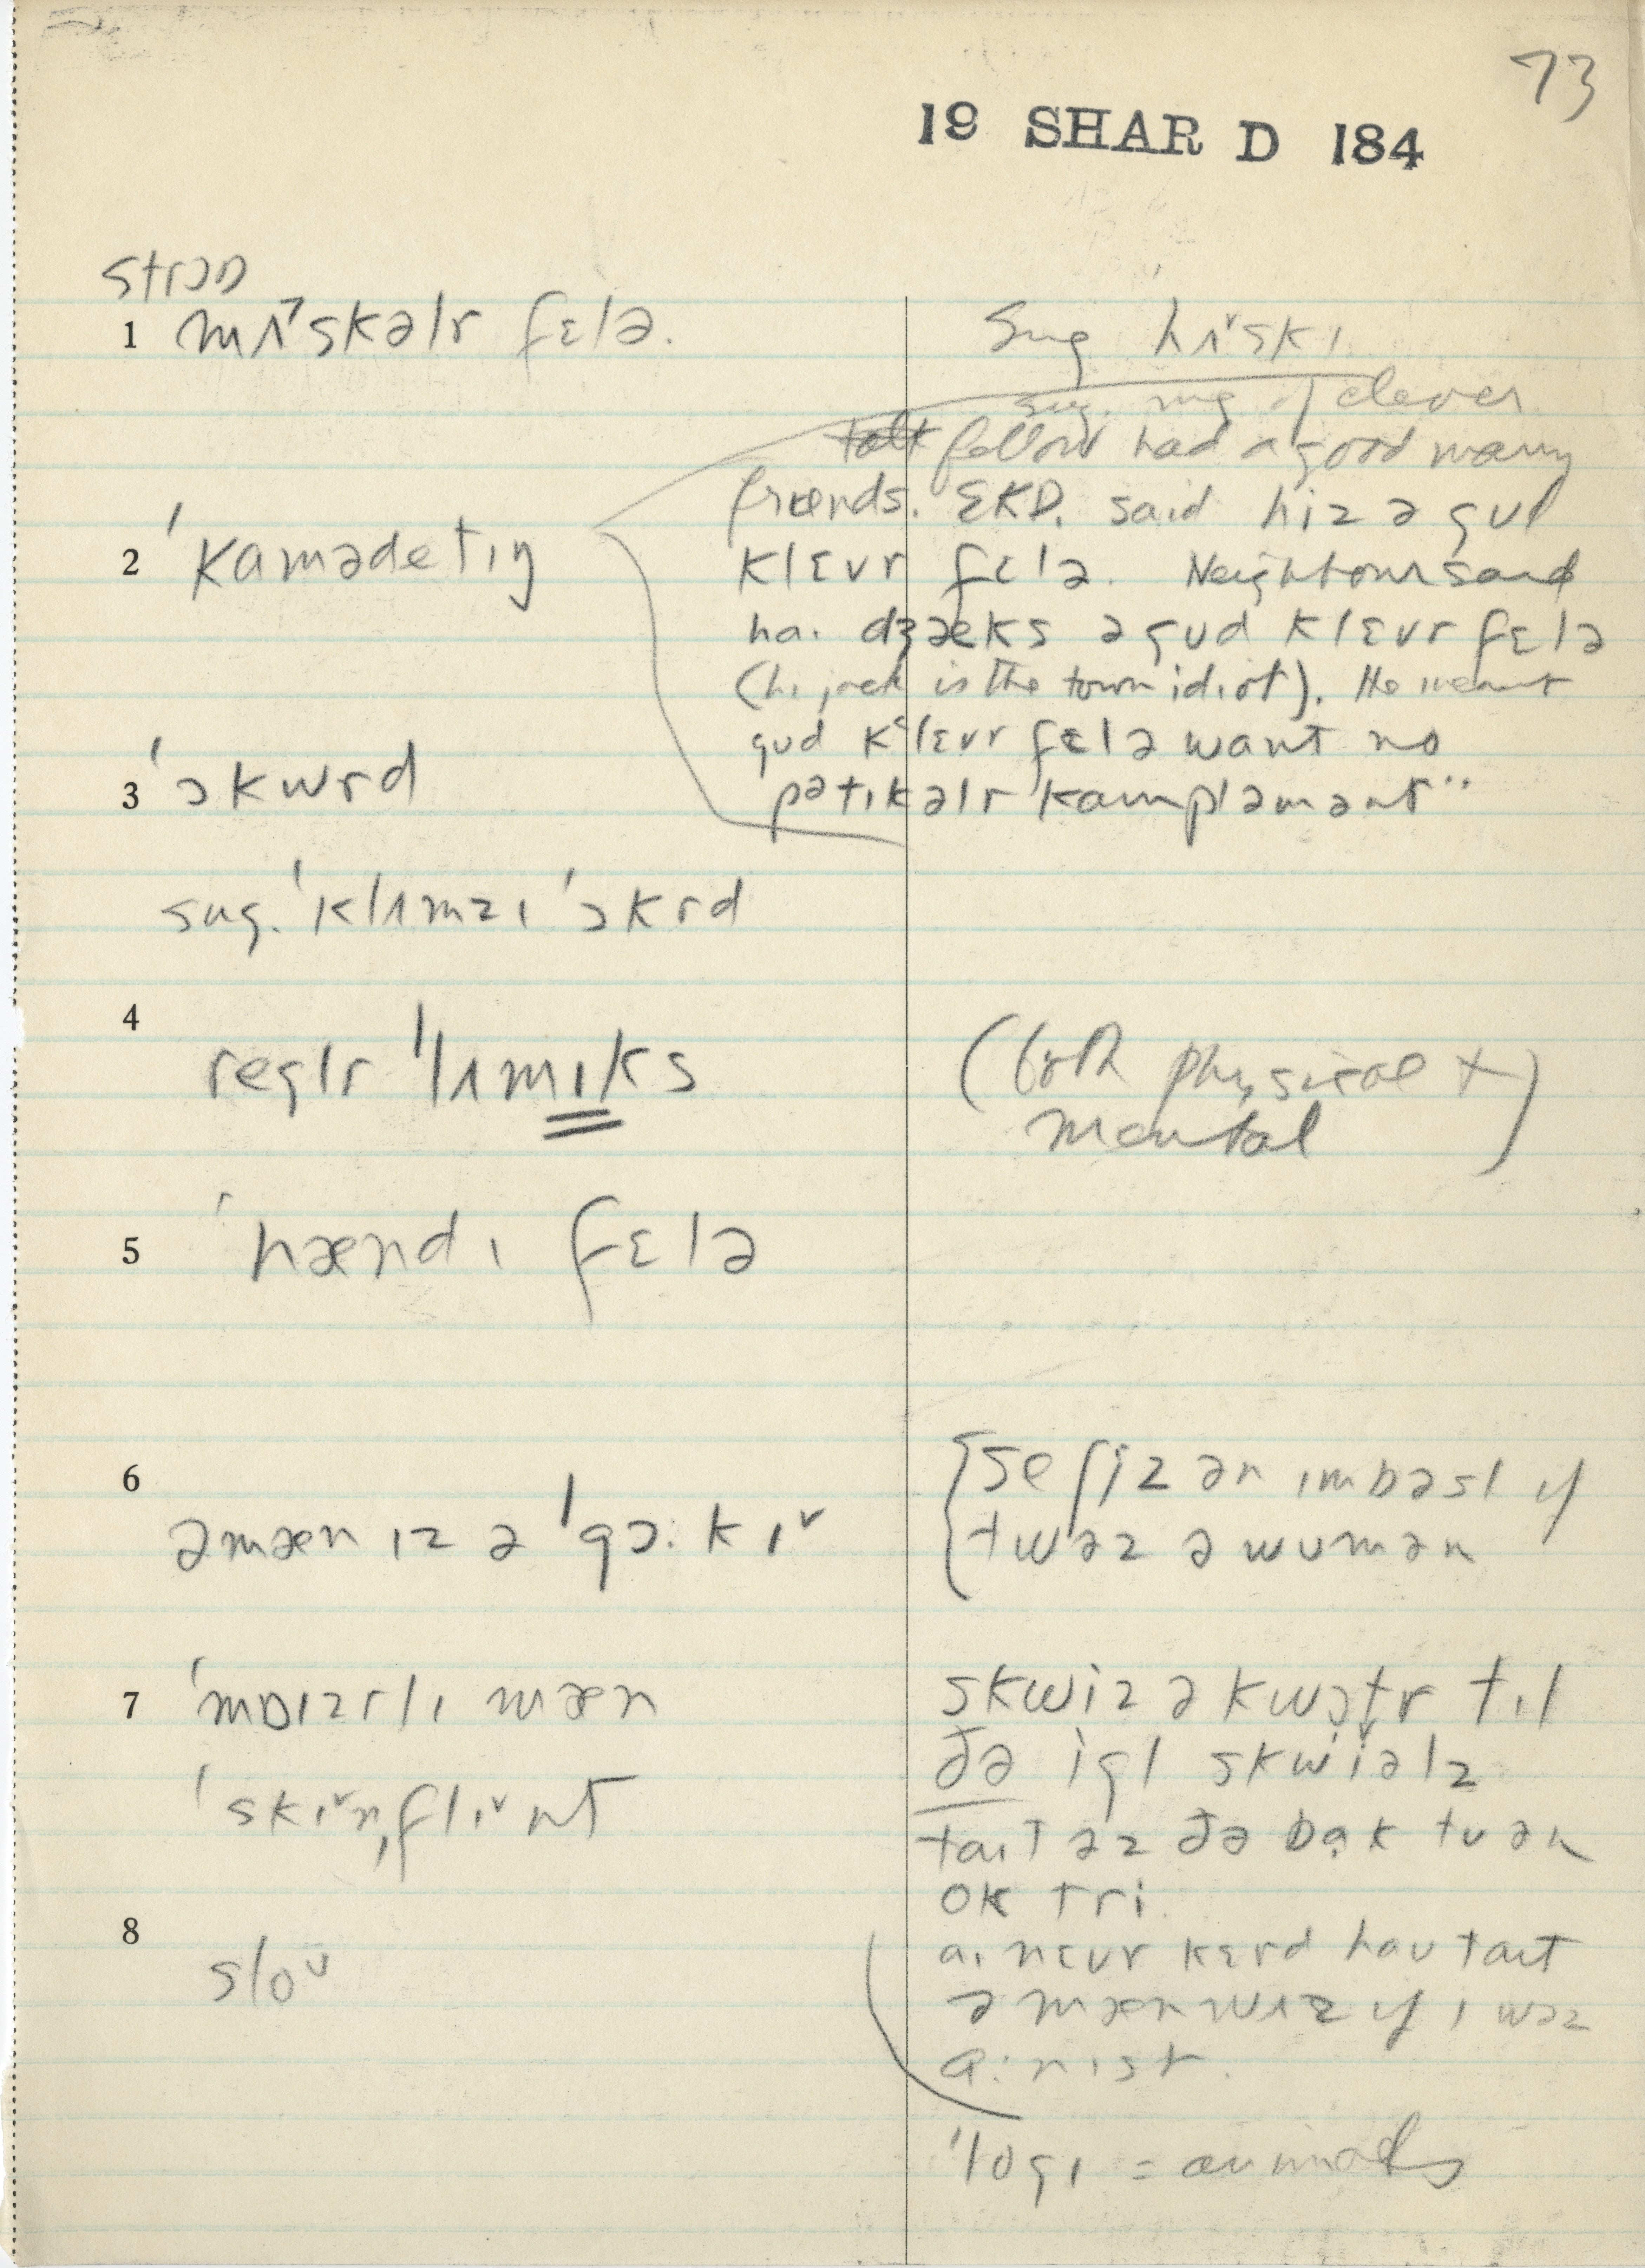 73
19 SHAR D 184
strɔŋ
1 mʌ˅skəlr fɛlə.
sug hʌ˅skɪ
sug. mg of clever
talk fellow had a good many
friends. EKD. said hiz ə gud
2 ˈkamədetɪŋ
klɛvr fɛlə. Neighbour said
ha. dʒæks ə gud klɛvr fɛlə
(hi jack is the town idiot). He meant
gud klɛvr fɛlə want no
3 ˈɔkwrd
pətɪkəlr kampləmənt"
sug. ˈklʌmzɪ ˈɔkrd
4
reglr ˈlʌmɪks
(both physical +
mental)
5 ˈhændɪ fɛlə
6
əmæn ɪz ə ˈgɔ:kɪ˅
se ʃiz ən ɪmbəsl if
twəz ə wumən
7 ˈmɒɪzrlɪ mæn
skwiz ə kwɔtr tɪl
ðə igl skwiəlz
ˈskɪ˅nˌflɪ˅nt
taɪt əz ðə bak tu ən
ok tri
8
slou
aɪ nɛvr kɛrd hau taɪt
ə mæn wʌz if ɪ wəz
a:nɪst.
ˈlogɪ = animals